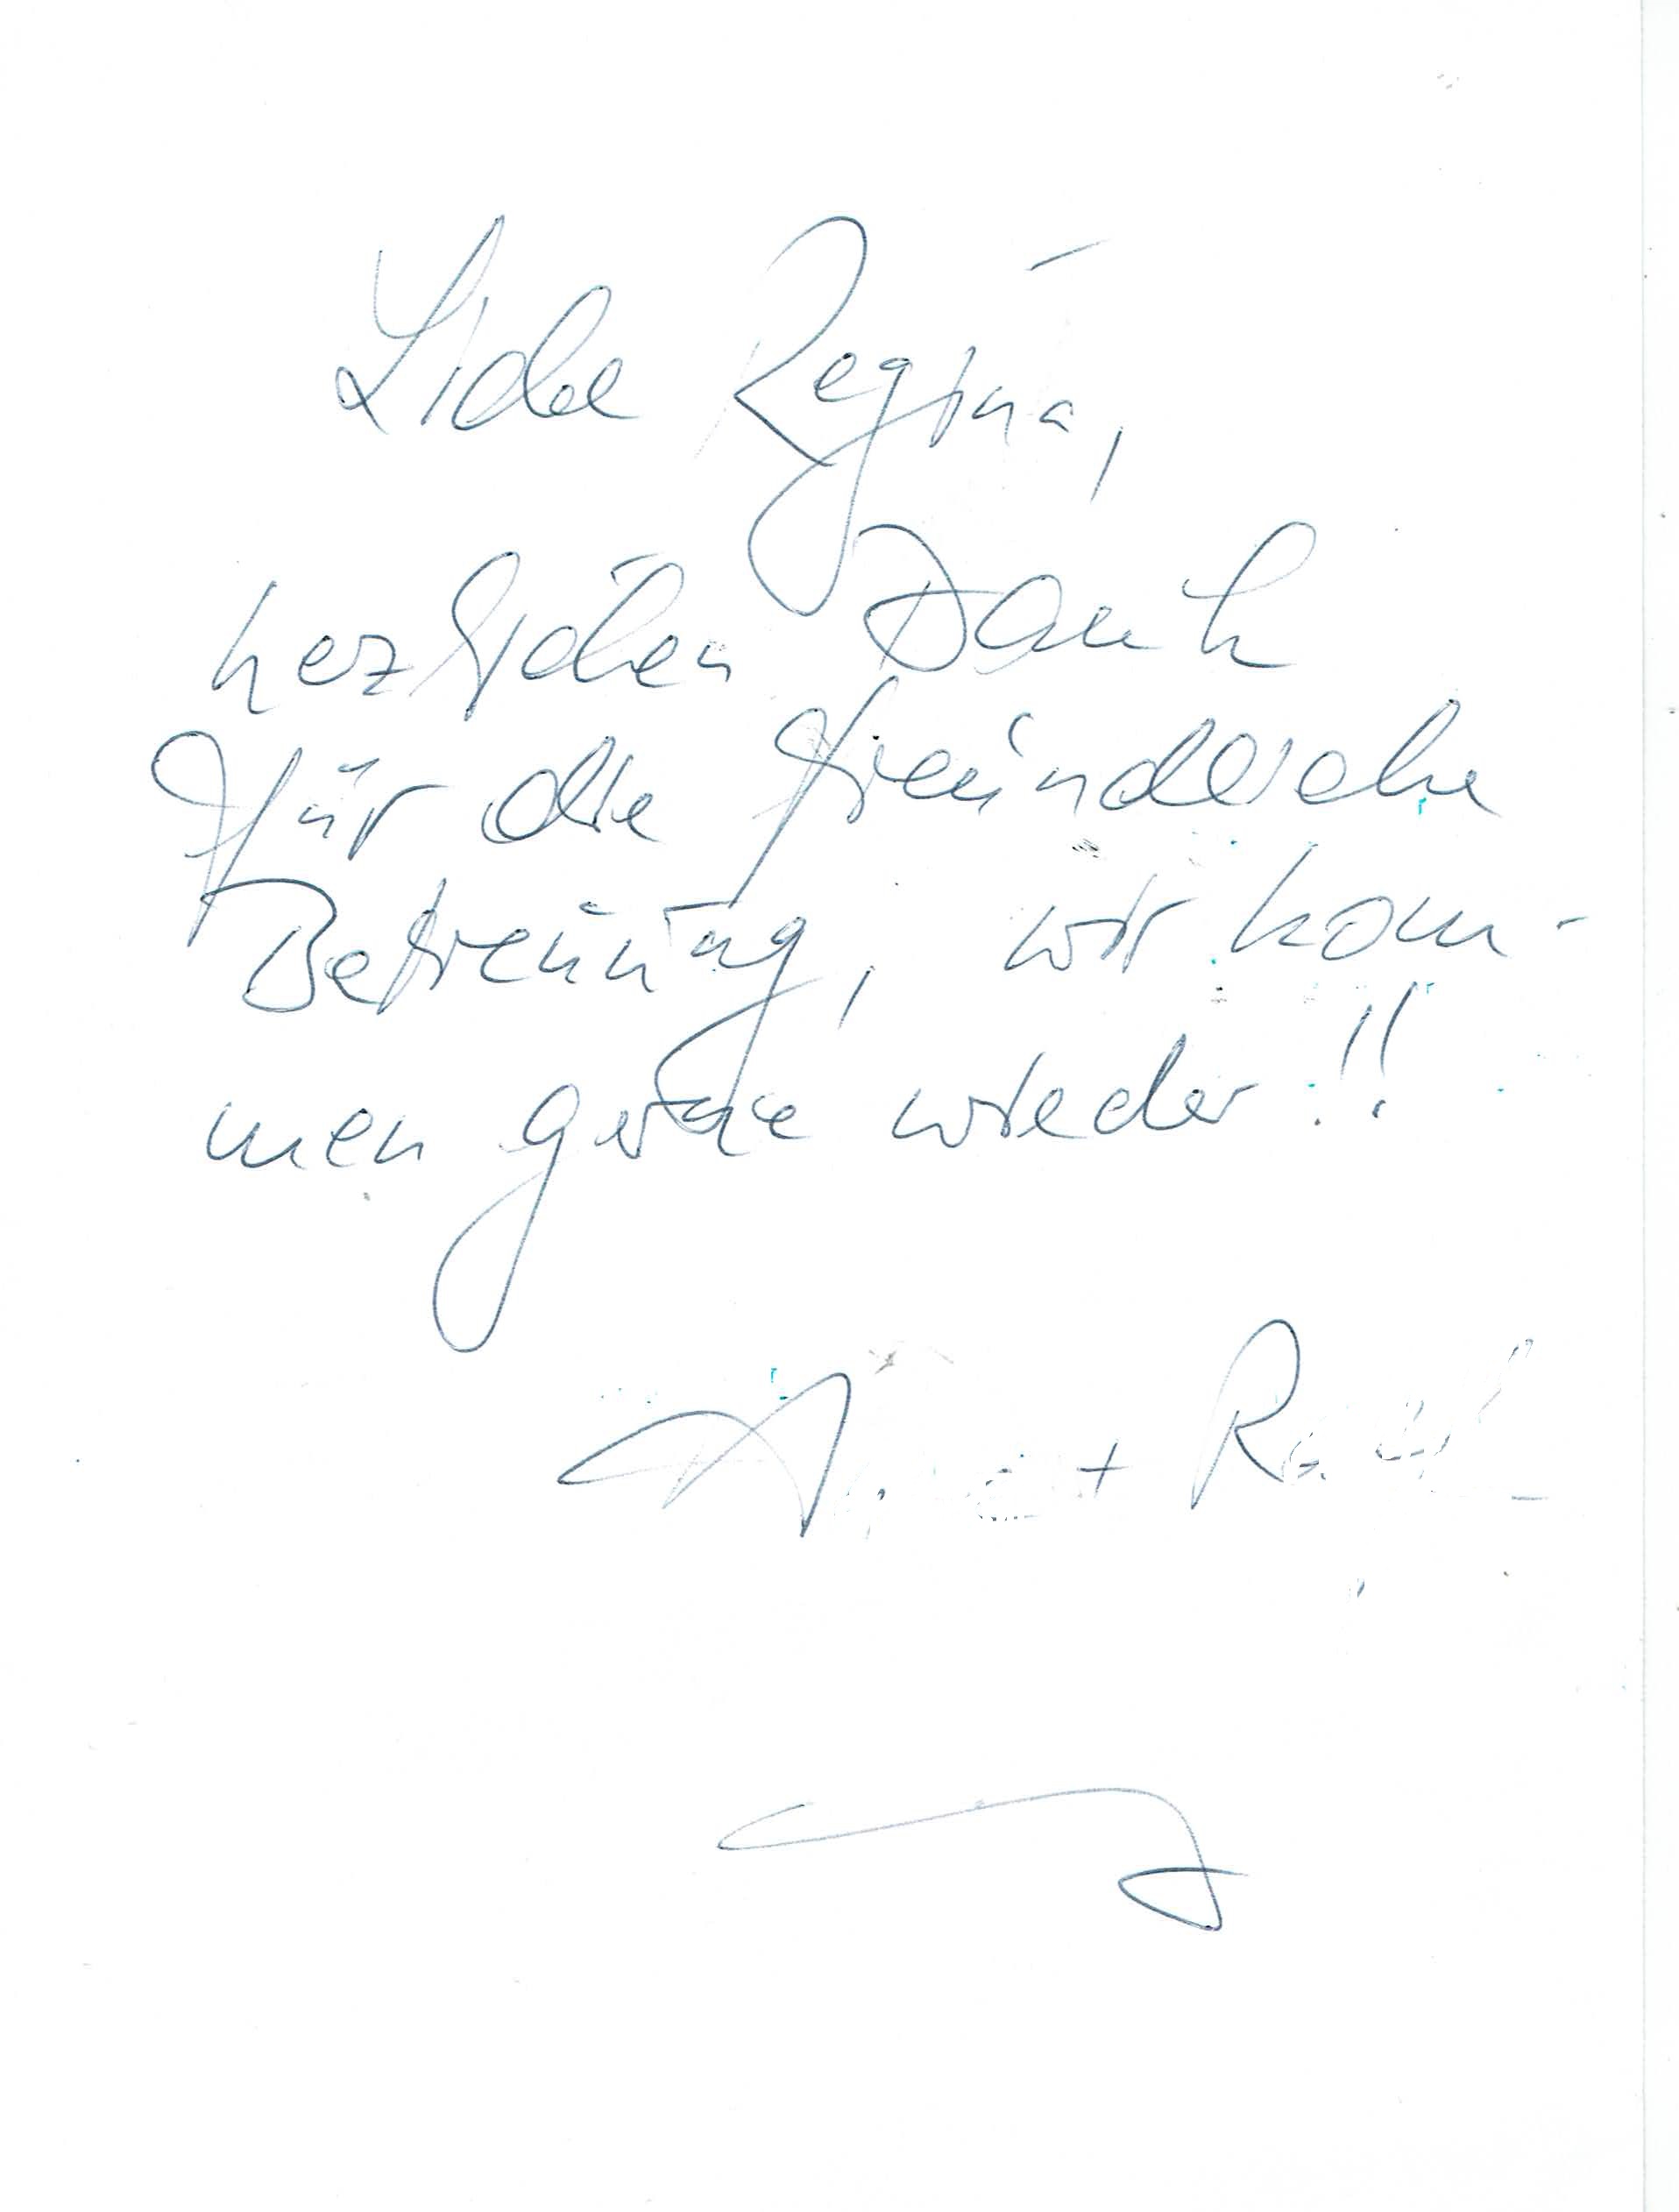 Liebe Regina,
herzlichen Dank
für die freundliche
Betreuung, wir kom-
men gerne wieder!!